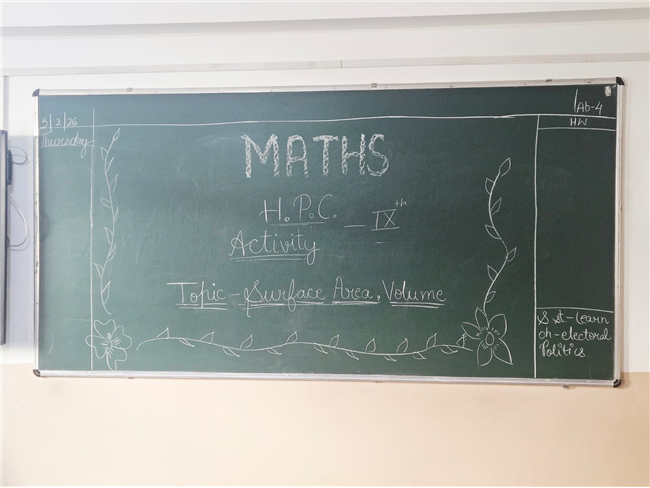 5/2/26
Thursday
Ab-4
HW
MATHS
H.P.C. - IXth
Activity
Topic - Surface Area, Volume
S St - Learn
ch - electoral
Politics